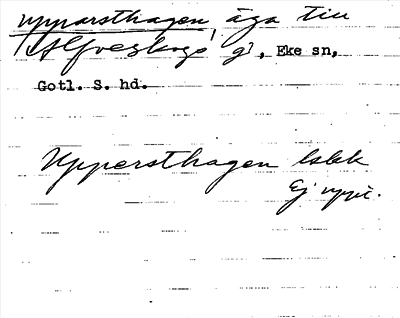 upparsthagen, äga till
Alfvestorgs gd, Eke sn,
Gotl. S. hd.
Uppersthagen lskk
Ej uppt.